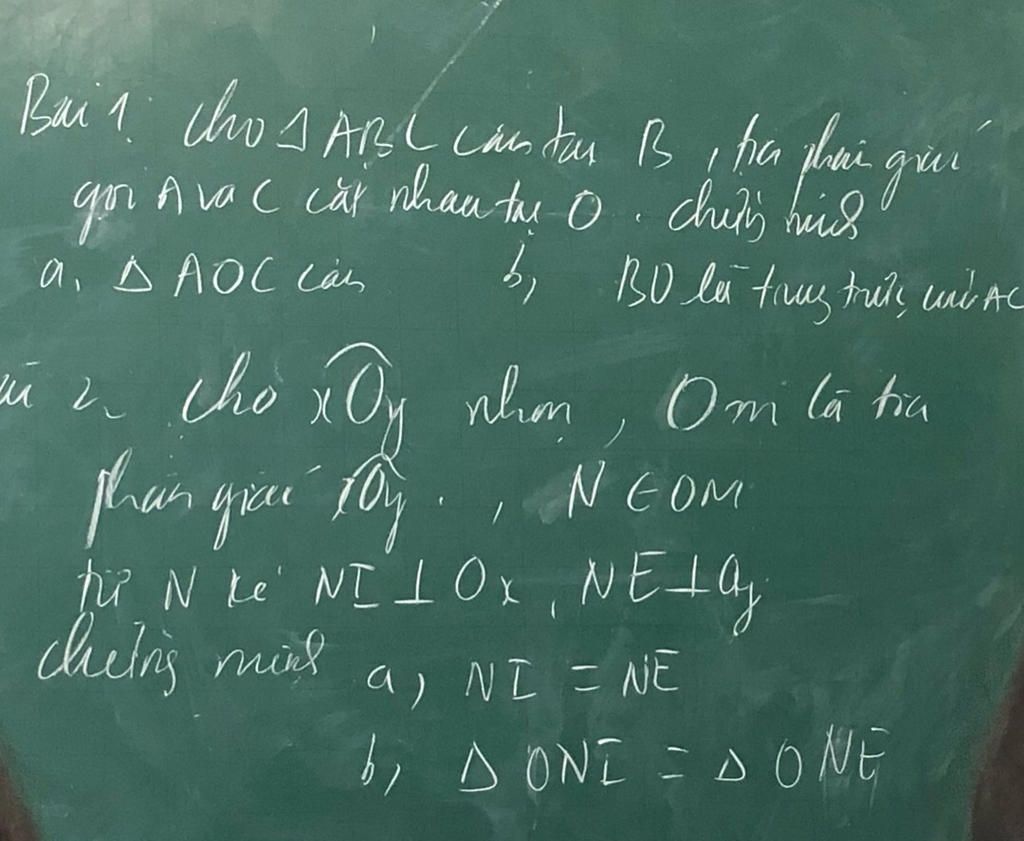 Bài 1: Cho Δ ABC cân tại B, tia phân giác
góc A và C cắt nhau tại O. chứng minh
a, Δ AOC cân b, BO là trung trực của AC
2, Cho xOy nhọn, Om là tia
phân giác xOy., N ∈ OM
từ N kẻ NI ⊥ Ox, NE ⊥ Oy
chứng minh a, NI = NE
b, Δ ONI = Δ ONE